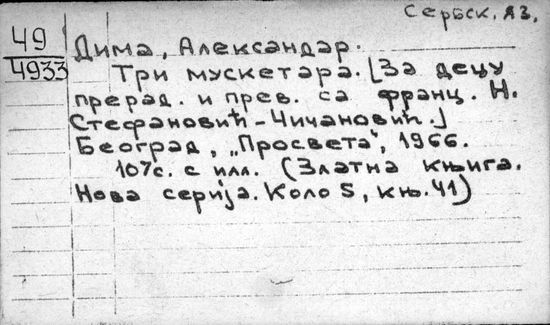 Сербск. яз.
49
4933
Дима, Александар.
Три мускетара. [За децу
прерад. и прев. са франц. Н.
Стефановић-Чичановић.]
Београд, „Просвета", 1966.
107с. с илл. (Златна књига.
Нова серија. Коло 5, књ. 41)